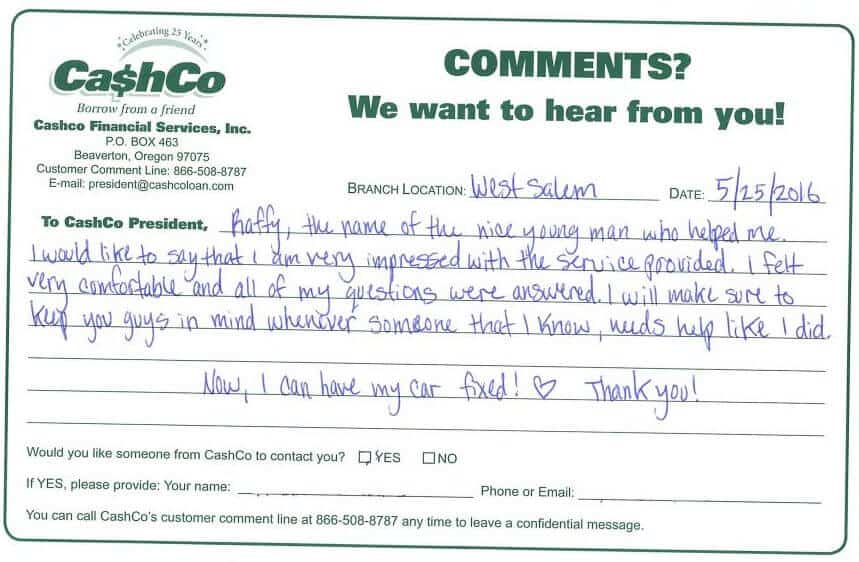 Celebrating 25 Years
Ca$hCo
Borrow from a friend
Cashco Financial Services, Inc.
P.O. BOX 463
Beaverton, Oregon 97075
Customer Comment Line: 866-508-8787
E-mail: president@cashcoloan.com
COMMENTS?
We want to hear from you!
BRANCH LOCATION: West Salem DATE: 5/25/2016
To CashCo President, Raffy, the name of the nice young man who helped me.
I would like to say that I am very impressed with the service provided. I felt
very comfortable and all of my questions were answered. I will make sure to
keep you guys in mind whenever someone that I know, needs help like I did.
Now, I can have my car fixed! ♡ Thank you!
Would you like someone from CashCo to contact you? YES NO
If YES, please provide: Your name: Phone or Email:
You can call CashCo's customer comment line at 866-508-8787 any time to leave a confidential message.